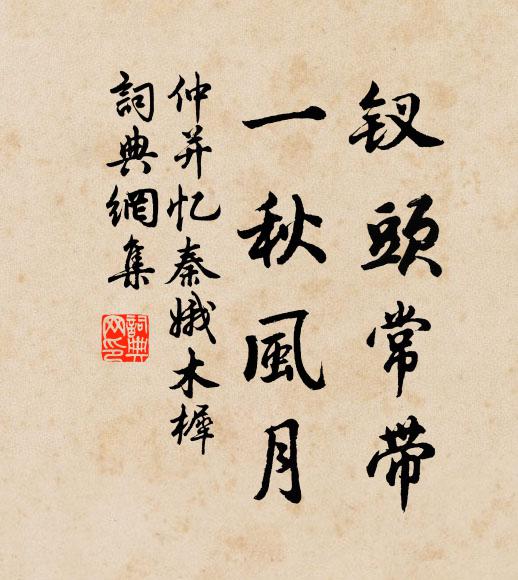 钗頭常带
一秋風月
仲并忆秦娥木樨
詞典網集
詞典網印